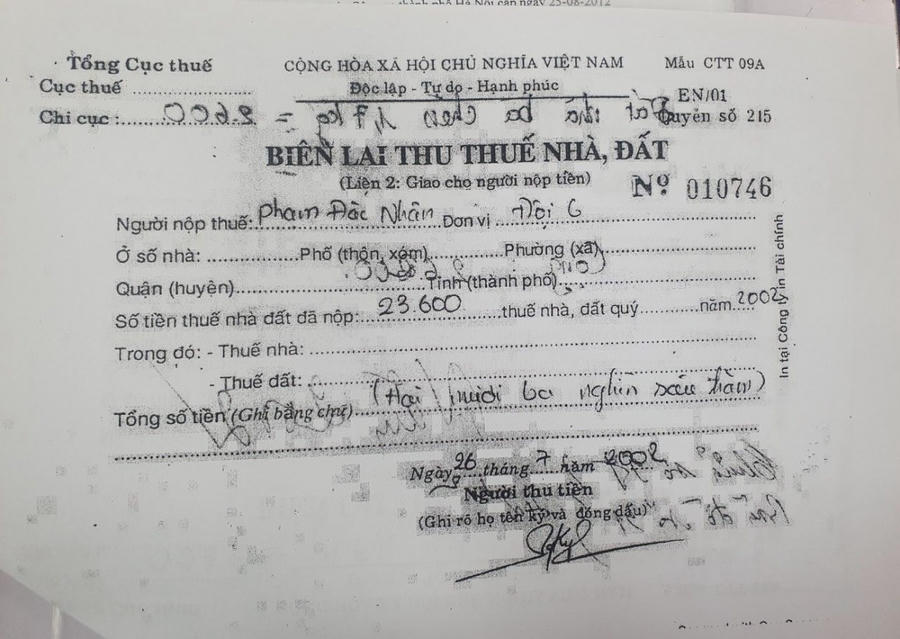 25-08-2012
Tổng Cục thuế
CỘNG HÒA XÃ HỘI CHỦ NGHĨA VIỆT NAM
Mẫu CTT 09A
Cục thuế ....................
Độc lập - Tự do - Hạnh phúc
EN/01
Chi cục :
Quyển số 215
BIÊN LAI THU THUẾ NHÀ, ĐẤT
(Liên 2: Giao cho người nộp tiền)
Nº 010746
Người nộp thuế: Phạm Đắc Nhân Đơn vị Đội 6
Ở số nhà: ............ Phố (thôn, xóm) ............ Phường (xã) ............
Quận (huyện) ............ Tỉnh (thành phố) ............
Số tiền thuế nhà đất đã nộp: 23.600 thuế nhà, đất quý ............ năm 2002
Trong đó: - Thuế nhà: ............
- Thuế đất: ............
Tổng số tiền (Ghi bằng chữ) (Hai mươi ba nghìn sáu trăm)
Ngày 26 tháng 7 năm 2002
Người thu tiền
(Ghi rõ họ tên ký và đóng dấu)
In tại Công ty in Tài chính